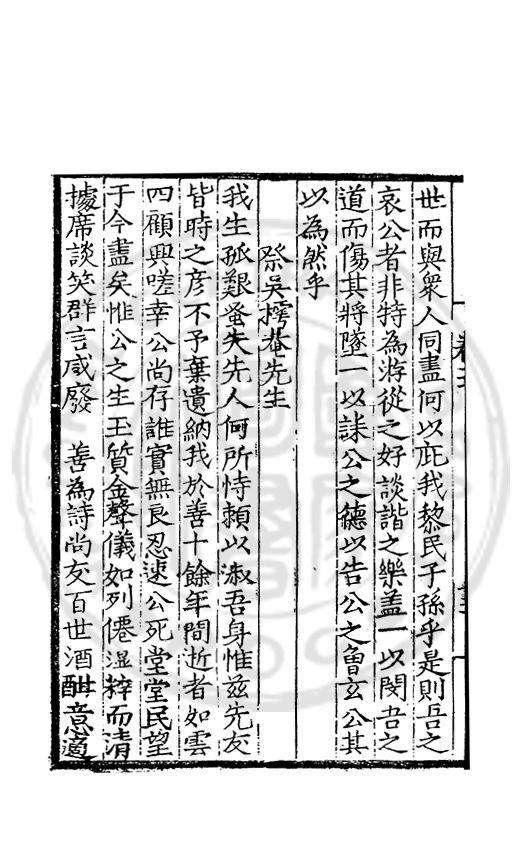 世而與衆人同盡何以庇我黎民子孫乎是則吾之
哀公者非特為游從之好談諧之樂盖一以閔吾之
道而傷其將墜一以誄公之德以告公之魯玄公其
以為然乎
祭吳㯉菴先生
我生孤艱蚤失先人何所恃頼以淑吾身惟兹先友
皆時之彦不予棄遺納我於善十餘年間逝者如雲
四顧興嗟幸公尚存誰實無良忍速公死堂堂民望
于今盡矣惟公之生玉質金聲儀如列僊温粹而清
據席談笑群言咸廢 善為詩尚友百世酒酣意適